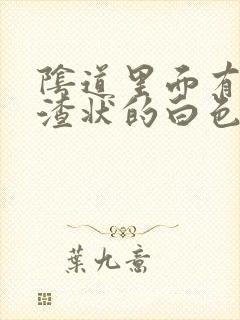 陰道里而有
渣狀的白色
葉九喬